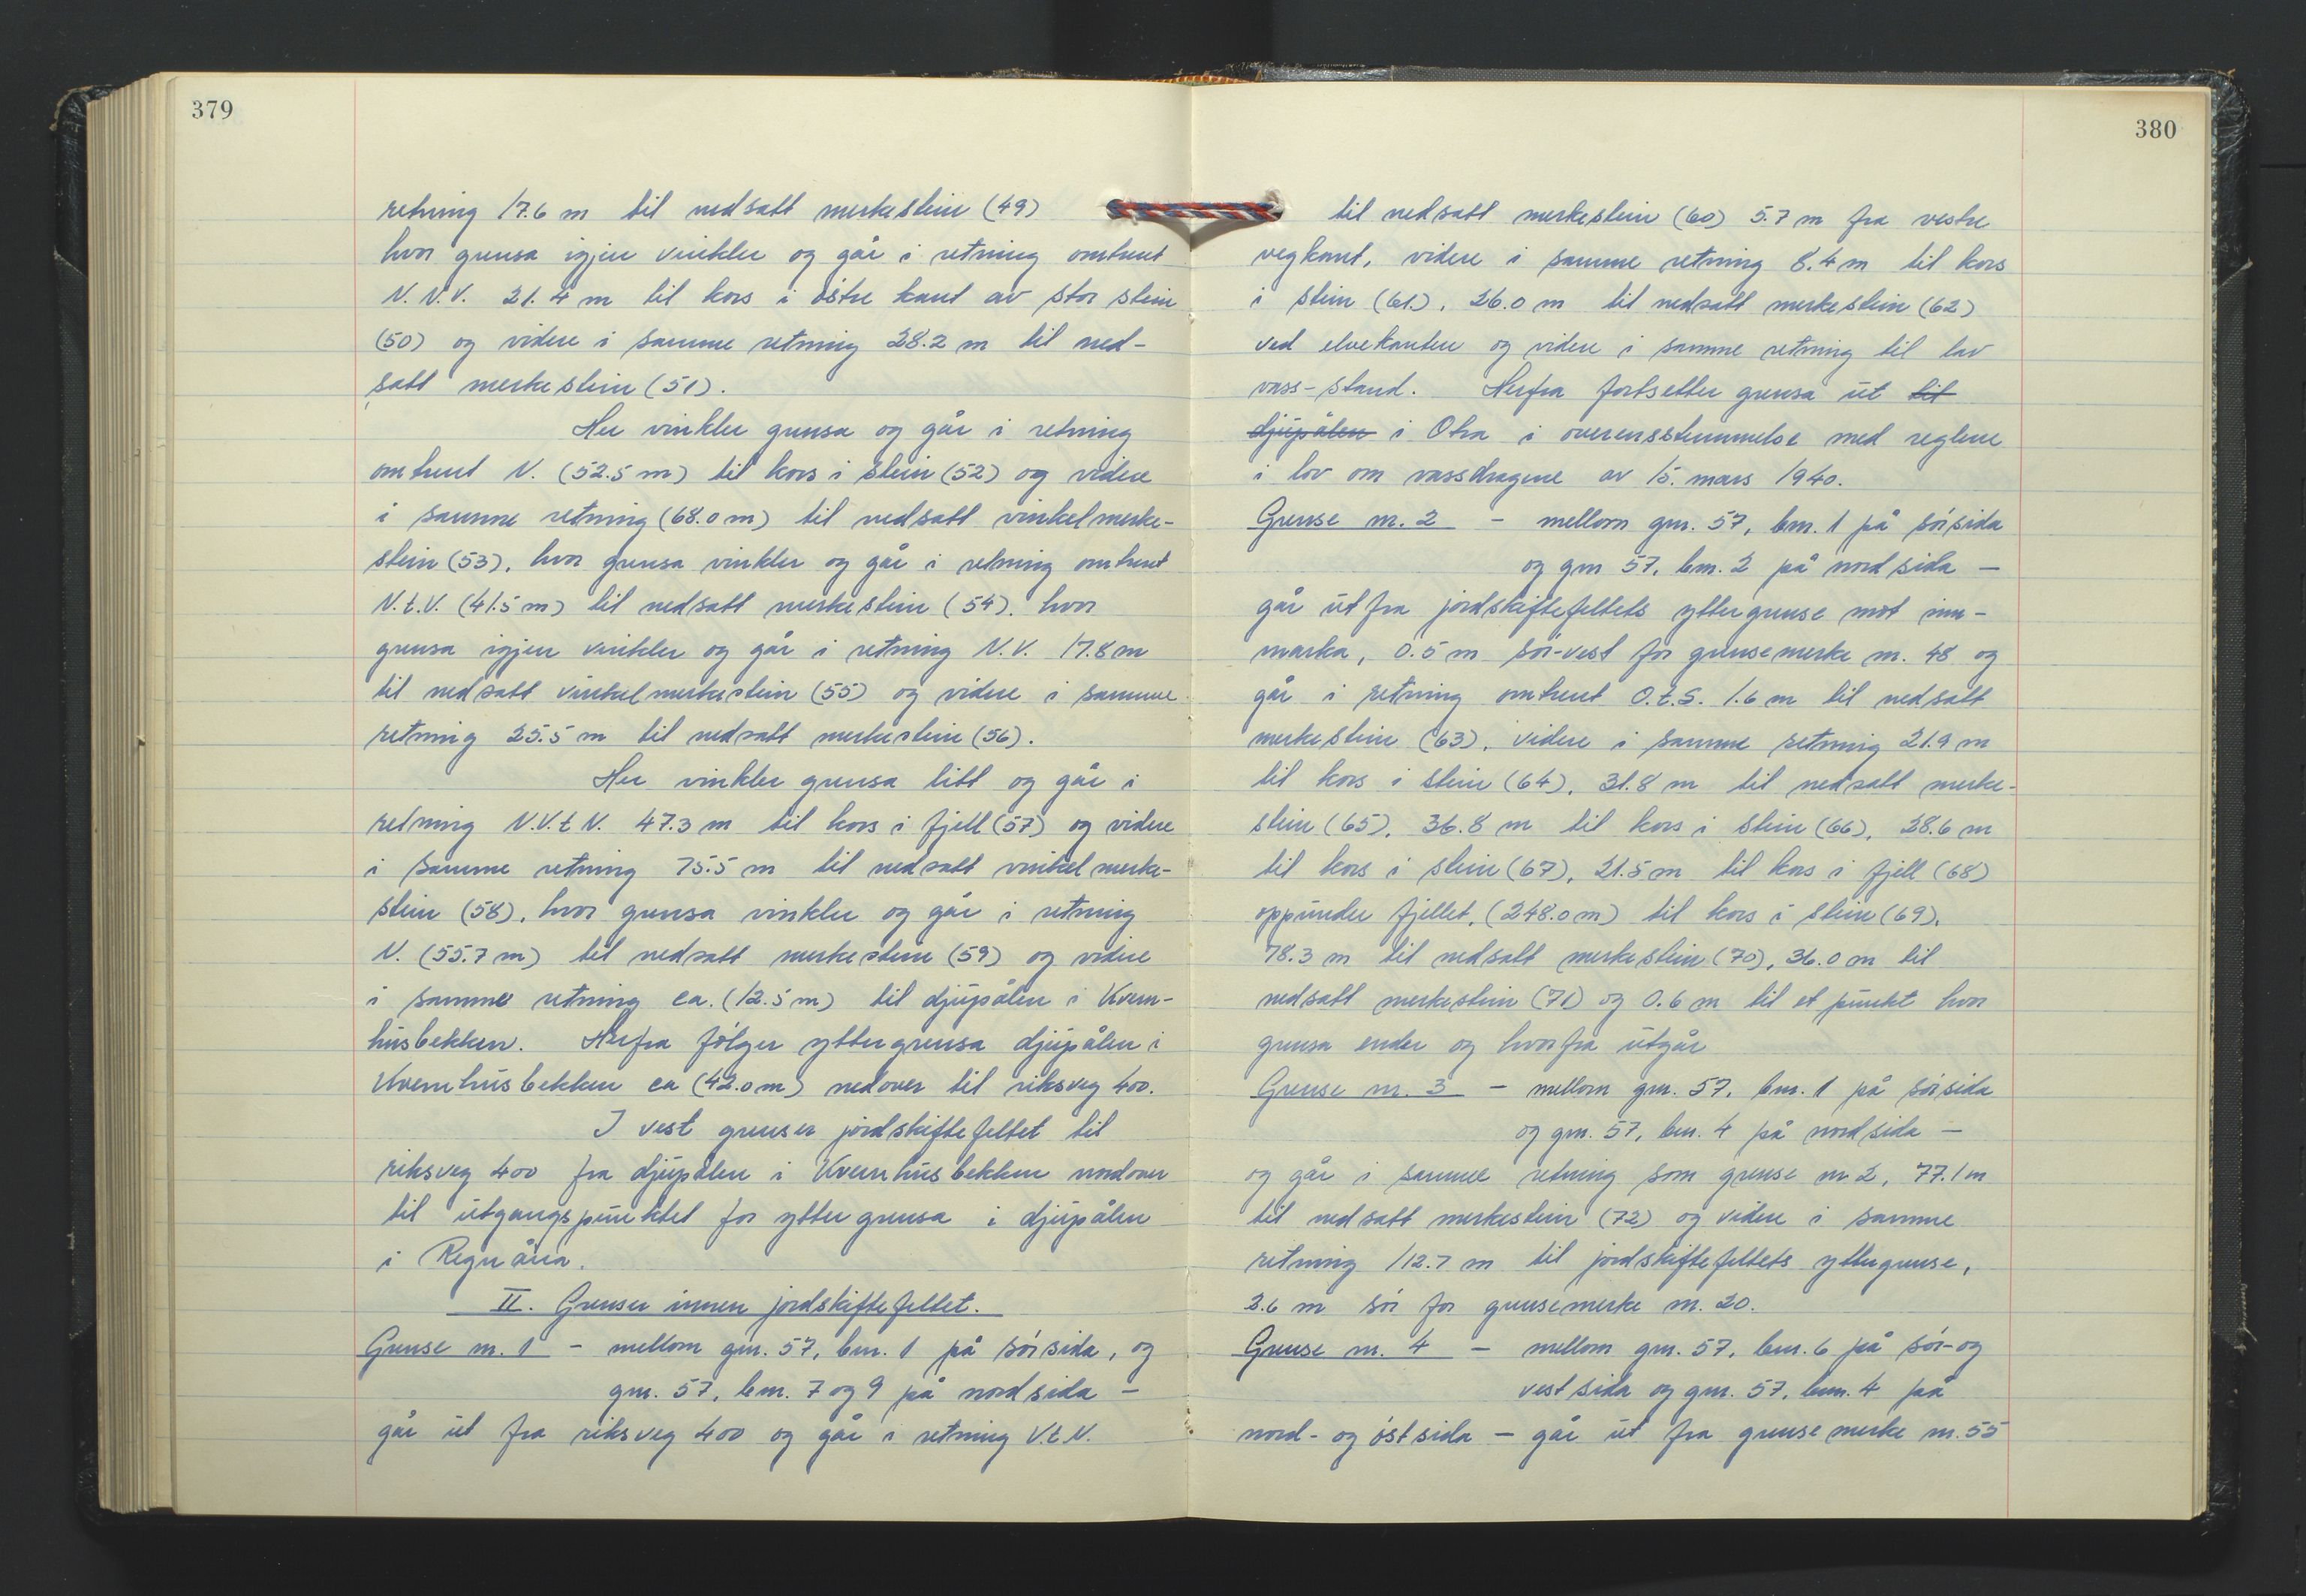 379
retning 17.6 m til nedsatt merkestein (49)
hvor grensa igjen vinkler og går i retning omtrent
N.N.V. 21.4 m til kors i östre kant av stor stein
(50) og videre i samme retning 28.2 m til ned-
satt merkestein (51).
Her vinkler grensa og går i retning
omtrent N. (52.5 m) til kors i stein (52) og videre
i samme retning (68.0 m) til nedsatt vinkelmerke-
stein (53), hvor grensa vinkler og går i retning omtrent
N.t.V. (41.5 m) til nedsatt merkestein (54), hvor
grensa igjen vinkler og går i retning N.V. 17.8 m
til nedsatt vinkelmerkestein (55) og videre i samme
retning 25.5 m til nedsatt merkestein (56).
Her vinkler grensa litt og går i
retning N.V.t N. 47.3 m til kors i fjell (57) og videre
i samme retning 75.5 m til nedsatt vinkelmerke-
stein (58), hvor grensa vinkler og går i retning
N. (55.7 m) til nedsatt merkestein (59) og videre
i samme retning ca. (12.5 m) til djupålen i Kvern-
husbekken. Herfra fölger yttergrensa djupålen i
Kvernhusbekken ca (42.0 m) nedover til riksveg 400.
I vest grenser jordskiftefeltet til
riksveg 400 fra djupålen i Kvernhusbekken nordover
til utgangspunktet for yttergrensa i djupålen
i Regnåna.
II. Grenser innen jordskiftefeltet.
Grense nr. 1 - mellom gnr. 57, bnr. 1 på sörsida, og
gnr. 57, bnr. 7 og 9 på nordsida -
går ut fra riksveg 400 og går i retning V.t.N.
380
til nedsatt merkestein (60) 5.7 m fra vestre
vegkant, videre i samme retning 8.4 m til kors
i stein (61), 26.0 m til nedsatt merkestein (62)
ved elvekanten og videre i samme retning til lav
vass-stand. Herfra fortsetter grensa ut til
djupålen i Otra i overensstemmelse med reglene
i lov om vassdragene av 15. mars 1940.
Grense nr. 2 - mellom gnr. 57, bnr. 1 på sörsida
og gnr 57, bnr. 2 på nordsida -
går ut fra jordskiftefeltets yttergrense mot inn-
marka, 0.5 m sör-vest for grensemerke nr. 48 og
går i retning omtrent O.t.S. 1.6 m til nedsatt
merkestein (63), videre i samme retning 21.9 m
til kors i stein (64), 31.8 m til nedsatt merke-
stein (65), 36.8 m til kors i stein (66), 28.6 m
til kors i stein (67), 21.5 m til kors i fjell (68)
oppunder fjellet, (248.0 m) til kors i stein (69),
78.3 m til nedsatt merkestein (70), 36.0 m til
nedsatt merkestein (71) og 0.6 m til et punkt hvor
grensa ender og hvorfra utgår
Grense nr. 3 - mellom gnr. 57, bnr. 1 på sörsida
og gnr. 57, bnr. 4 på nordsida -
og går i samme retning som grense nr 2, 77.1 m
til nedsatt merkestein (72) og videre i samme
retning 112.7 m til jordskiftefeltets yttergrense,
2.6 m sör for grensemerke nr. 20.
Grense nr. 4 - mellom gnr. 57, bnr. 6 på sör- og
vestsida og gnr. 57, bnr. 4 på
nord- og östsida - går ut fra grensemerke nr. 55